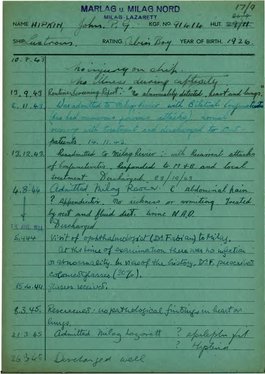 MARLAG u. MILAG NORD
MILAG LAZARETT
17/9
NAME HIPKIN, John. P. G. KGF NO. 91414 HUT
SHIP Lustrous. RATING Cabin Boy YEAR OF BIRTH. 1926.
10.8.43
No injury on ship
No illness during captivity
13.9.43 Routine Screening Report: "No abnormality detected, heart and lungs".
6.11.43 Readmitted to Milag Revier with Bilateral Conjunctivitis
(has had numerous previous attacks)
with treatment and discharged to Out
Patients. 14.11.43.
12.12.43 Readmitted to Milag Revier: with recurrent attacks
of Conjunctivitis. Responded to M.&B. and local
treatment. Discharged
4.8.44 Admitted Milag Revier. Abdominal pain
? Appendicitis. No sickness or vomiting. Treated
by rest and fluid diet. Urine N.A.D.
Discharged
Visit of ophthalmologist to Milag.
At this time of examination there was no injection
or abnormality. In view of the history, Dr. F. prescribed
coloured glasses (50%).
15.6.44 Glasses received.
8.3.45. Rescreened: no pathological findings in heart or
lungs.
21.3.45 Admitted Milag Lazarett ? epileptic fit
26.3.45 Discharged well